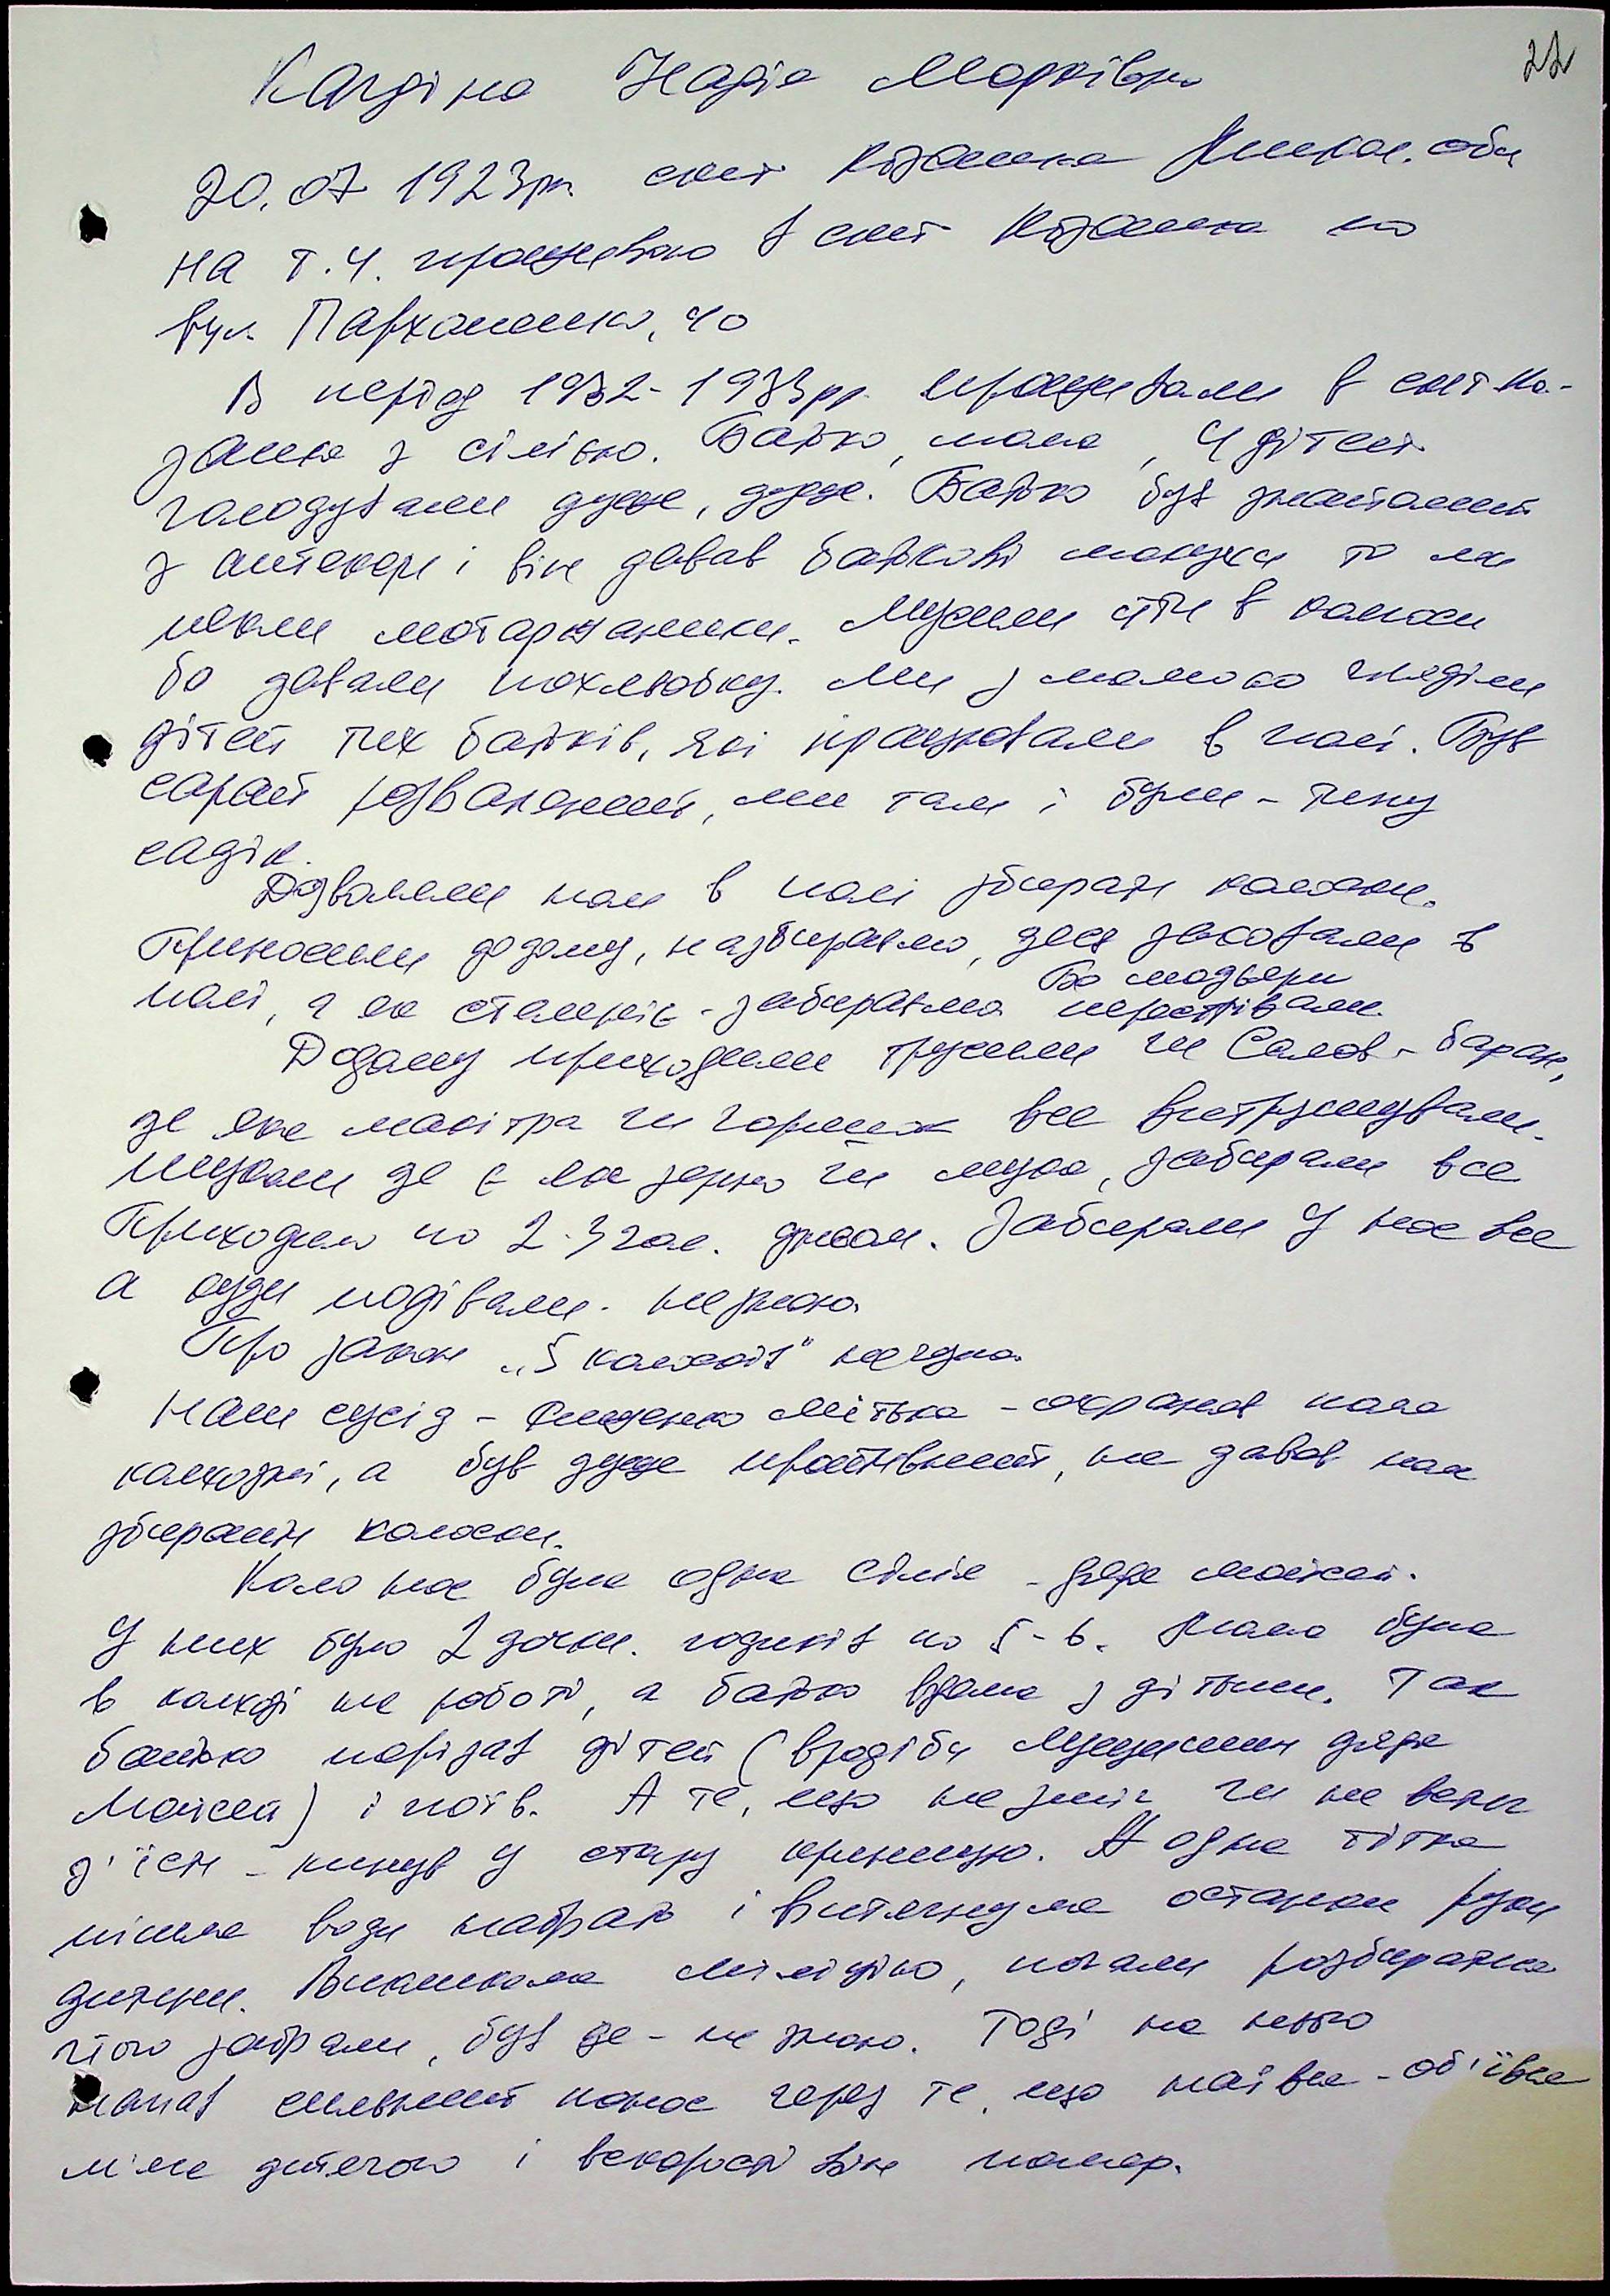 22
Надія Марківна
20.07 1923рн смт Казанка Микол. обл
на т.ч. проживаю в смт Казанка по
вул Пархоменко, 40
В період 1932-1933рр. проживали в смт Ка-
занка з сім'єю. Батько, мама, 4 дітей
голодували дуже, дуже. Батько був знайомий
з аптекарем і він давав батькові макуху то ми
пекли маторжаники. Мусили йти в колхоз
бо давали похльобку. Ми з мамою гляділи
дітей тих батьків, які працювали в полі. Був
сарай розвалений, ми там і були - типу
садік.
Дозволяли нам в полі збирати колоски.
Приносили додому, назбираємо, десь заховали в
полі, а як стемніє - забираємо. Бо модьяри
перестрівали.
Додому приходили трусили чи Салов - баран,
де яка макітра чи горшок все витрушували.
шукали де є яке зерно чи мука, забирали все
Приходило по 2-3 чол. Забирали у нас все
а куди подівали - не знаю.
Про закон „5 колосків" не чула.
Наш сусід - Мітька - охраняв поля
колхозні, а був дуже протівний, не давав нам
збирати колоски.
Коло нас була одна сім'я - дядя Мойсей.
У них було 2 дочки. годиків по 5-6. Мама була
в колхозі на роботі, а батько вдома з дітьми. Так
батько порізав дітей (вродіби дядя
Мойсей) і поїв. А те, що не зміг чи не встиг
з'їсти - кинув у стару криницю. А одна тітка
пішла води набрать і витягнула останки руки
дитини. Викликала міліцію, почали розбиратися
його забрали, був де - не знаю. Тоді на нього
напав сильний понос через те, що наївся - об'ївся
м'яса дитячого і вскорості він помер.